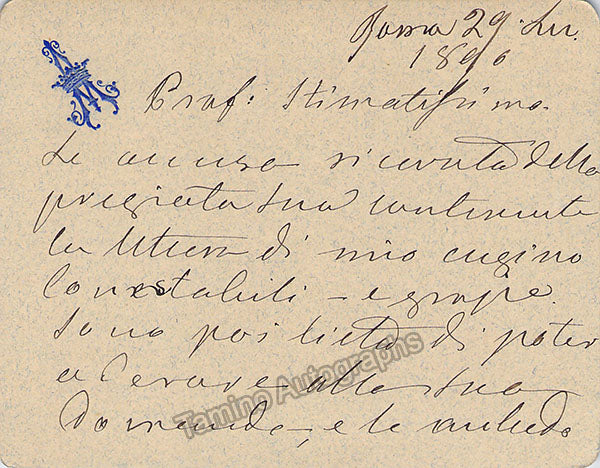 Roma 29 Lu.
1890
Prof: Stimatissimo.
Le accuso ricevuta della
pregiata Sua contenente
la lettera di mio cugino
Connestabili - e grazie.
Sono poi lieta di poter
aderare alla Sua
domanda, e le accludo
Tamino Autographs